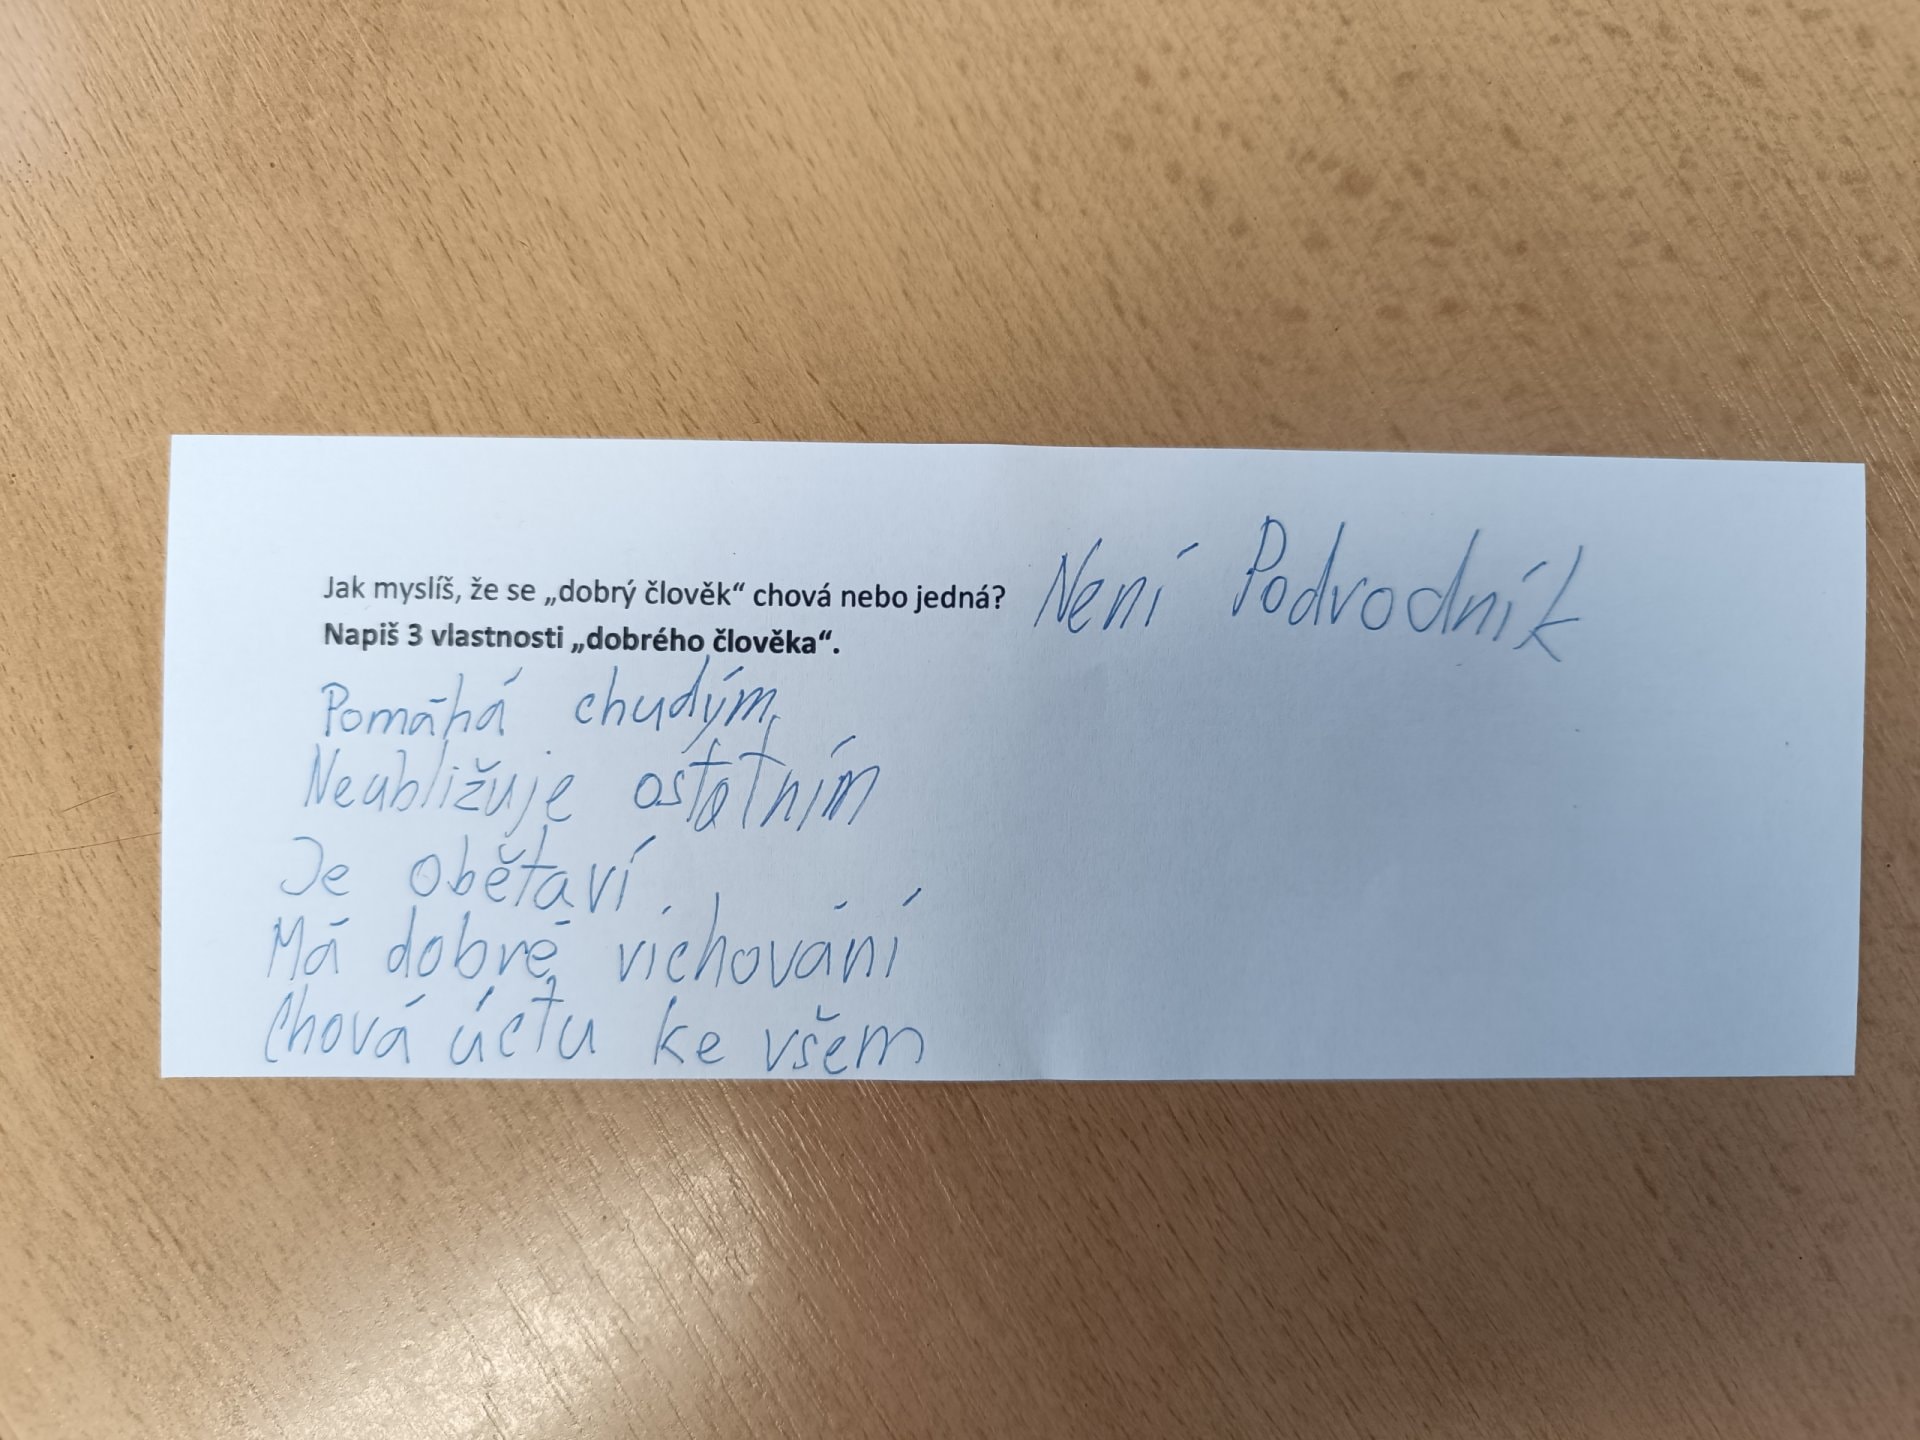 Jak myslíš, že se „dobrý člověk“ chová nebo jedná?
Napiš 3 vlastnosti „dobrého člověka“.
Není Podvodník
Pomáhá chudým
Neubližuje ostatním
Je obětaví
Má dobré víchování
Chová úctu ke všem